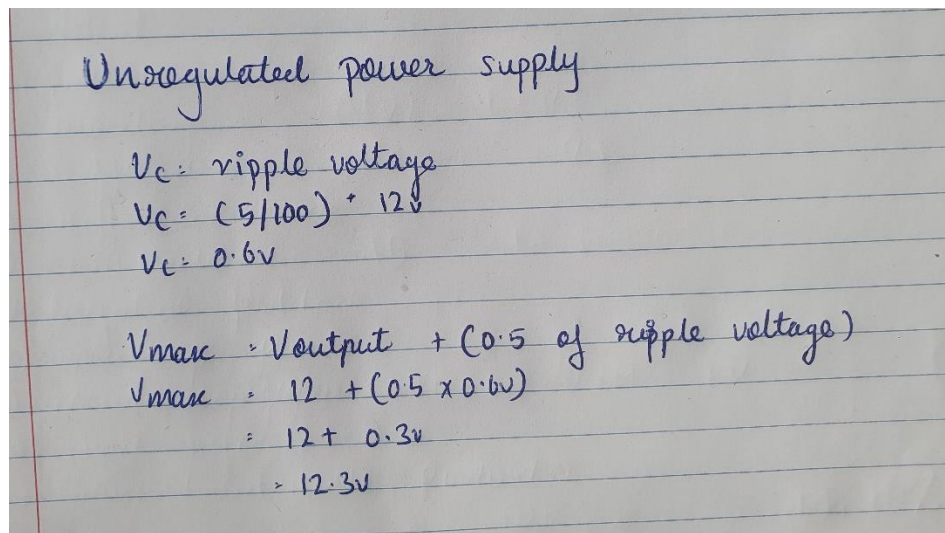 Unregulated power supply
Vc = ripple voltage
Vc = (5/100) * 12v
Vc = 0.6v
Vmax = Voutput + (0.5 of ripple voltage)
Vmax = 12 + (0.5 x 0.6v)
= 12 + 0.3v
= 12.3v